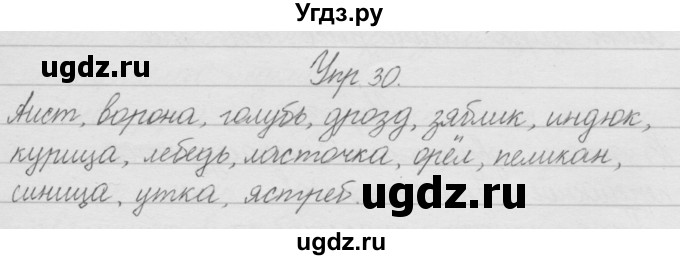 Угдз.ру
ugdz.ru
ugdz.ru
Упр 30.
Аист, ворона, голубь, дрозд, зяблик, индюк,
курица, лебедь, ласточка, орёл, пеликан,
синица, утка, ястреб.
ugdz.ru
ugdz.ru